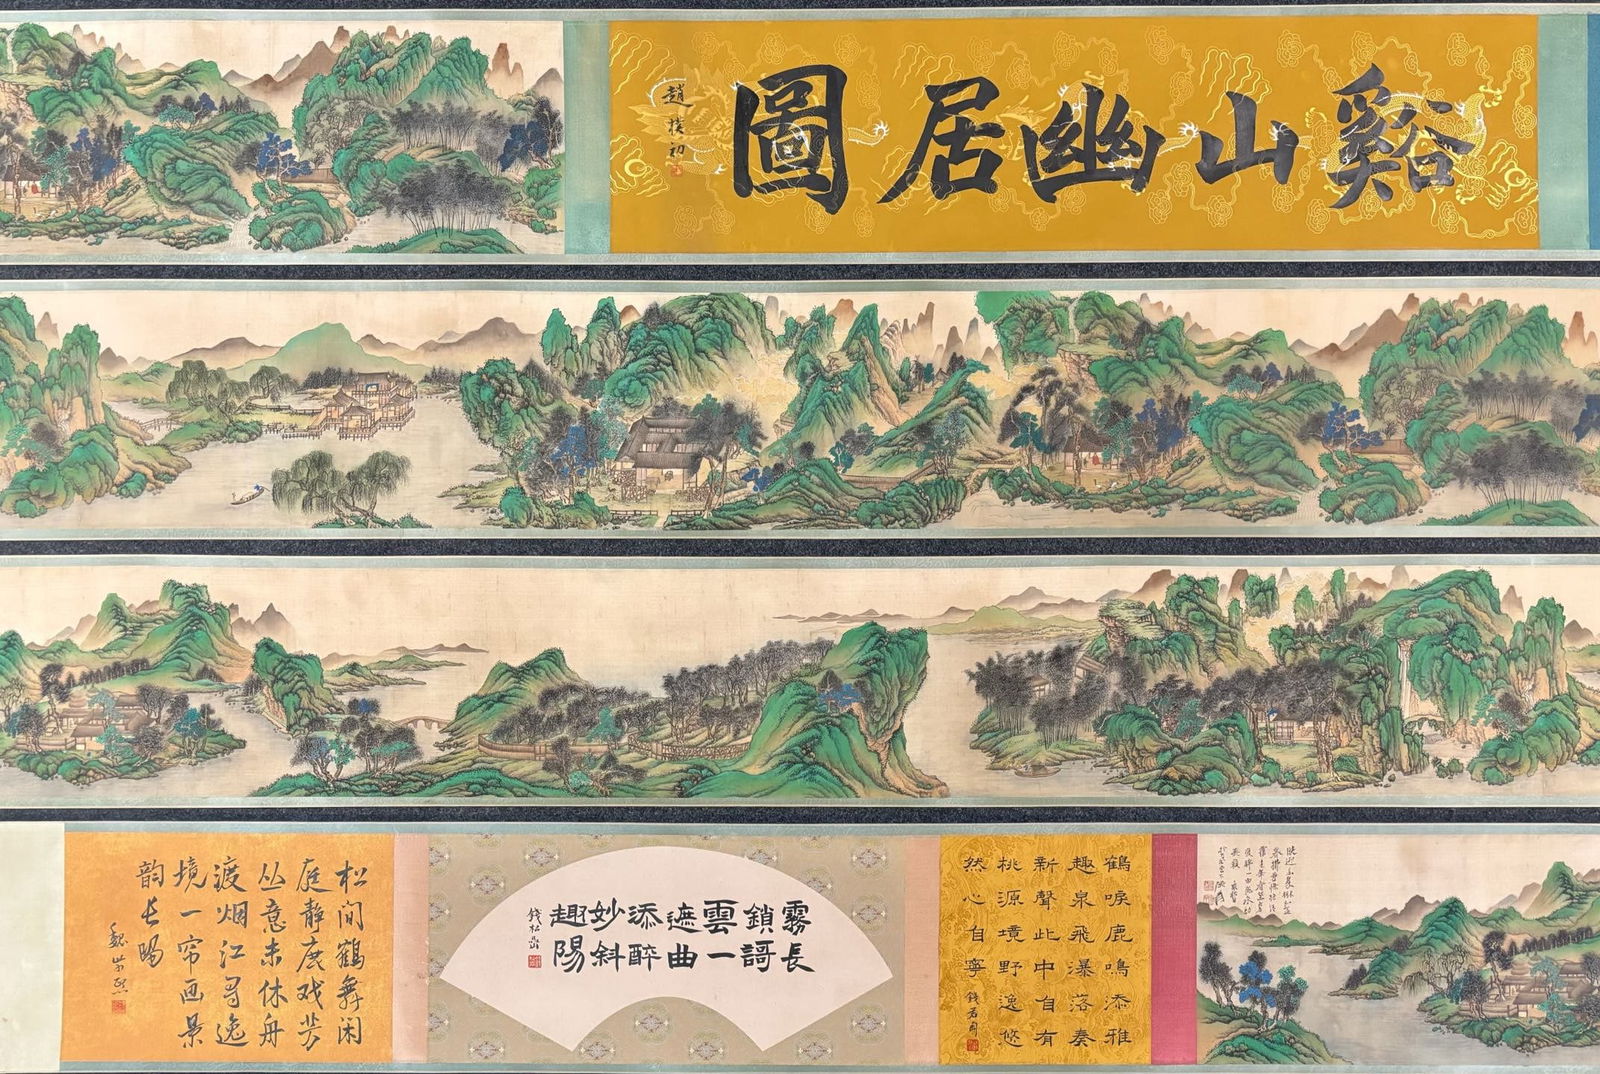 谿山幽居圖
趙樸初
鶴唳鹿鳴添雅
趣泉飛瀑落奏
新聲此中自有
桃源境野逸悠
然心自寧
錢君匋
霧長
鎖謌
雲一
遮曲
添醉
妙斜
趣陽
錢松嵒
松间鶴舞闲
庭静鹿戏芳
丛意未休舟
渡烟江寻逸
境一帘画景
韵长賜
魏紫熙